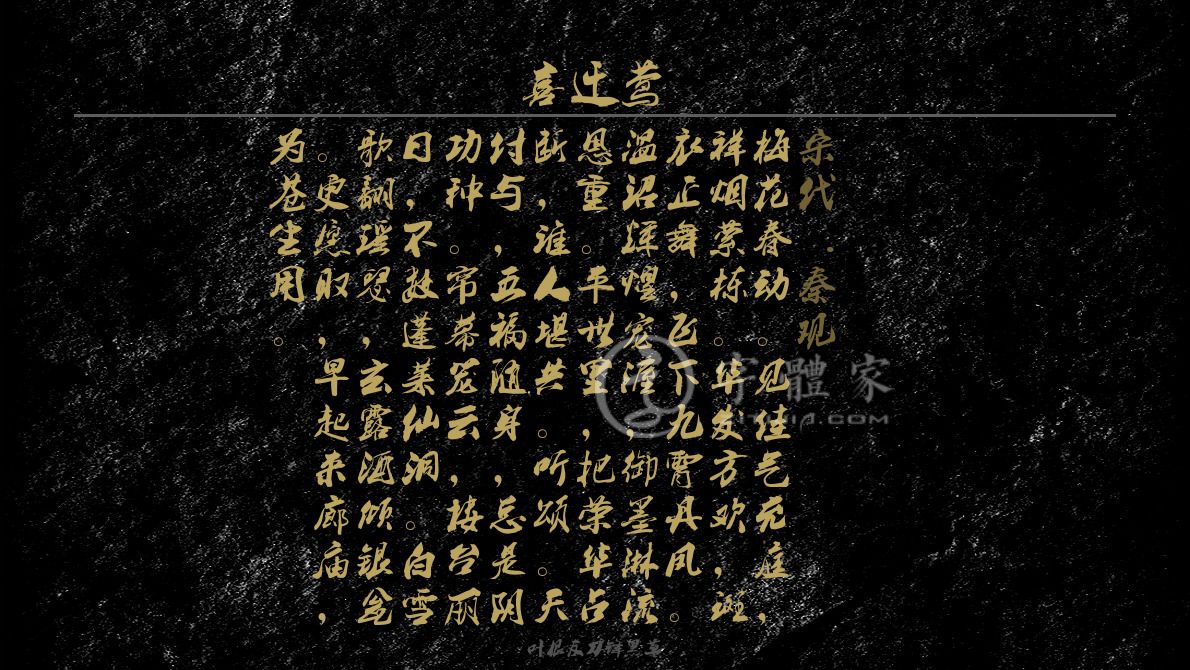 喜迁莺
宋代·秦观
梅花春动。见佳气充庭，
祥烟萦栋。华发方欢，斑
衣正舞，飞下九霄丹凤。
温诏辉煌宠渥，御墨淋漓
恩重。平世里，把荣华占
断，谁人堪共。听颂。天
付与，五福随身，总是阴
功种。帘幕笼云，楼台丽
日，不数蓬莱仙洞。白雪
歌翻瑶瑟，玄露酒倾银瓮
。更愿取，早起来廊庙，
为苍生用。
字體家
ZITIJIA.COM
叶根友刀锋黑草